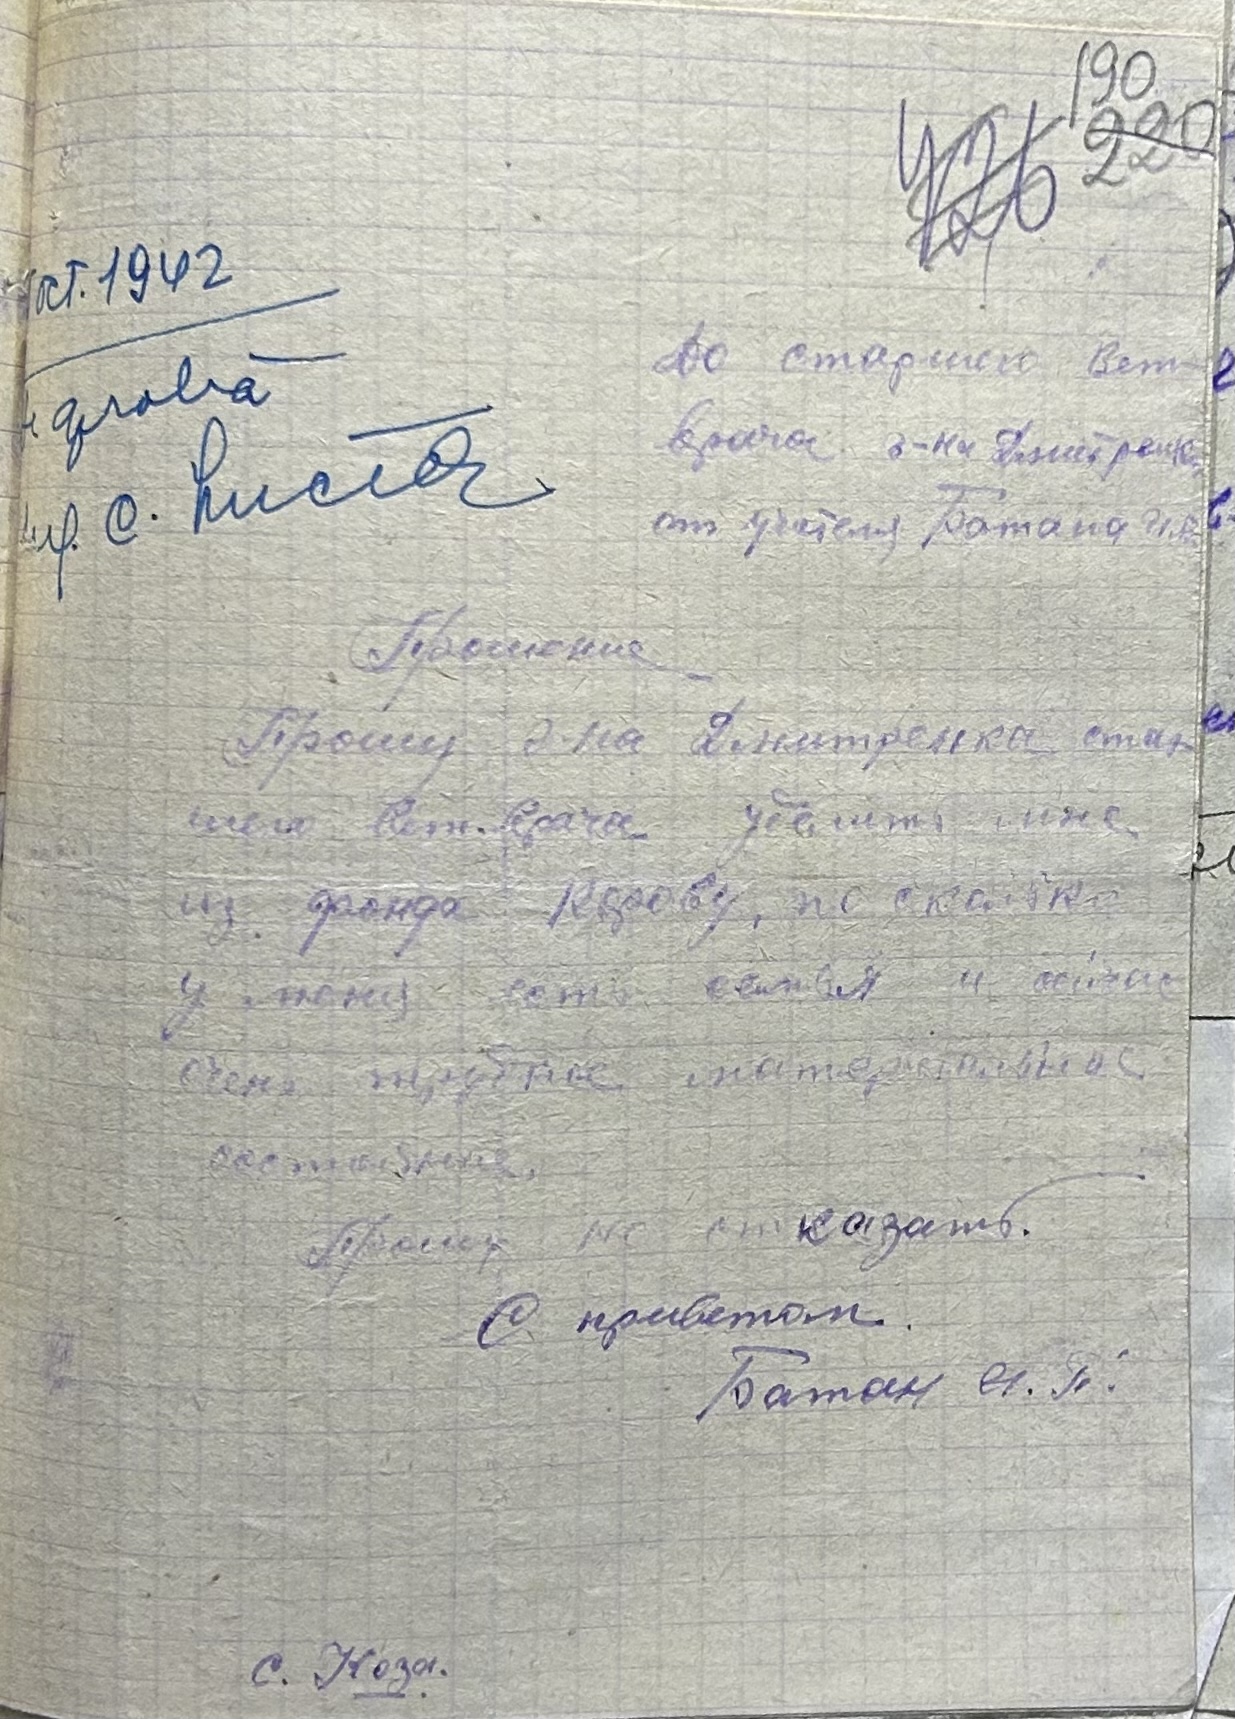 190
220
окт. 1942
До старшего Вет-
врача г-на Дмитренка
от учителя Батана
Прошение
Прошу г-на Дмитренка стар
шего Вет. врача уделить мне
из фонда Корову, по сколько
у меня есть семья и
очень трудное материальное
состояние.
Прошу не отказать.
С приветом.
Батан И. П.
с. Коза.